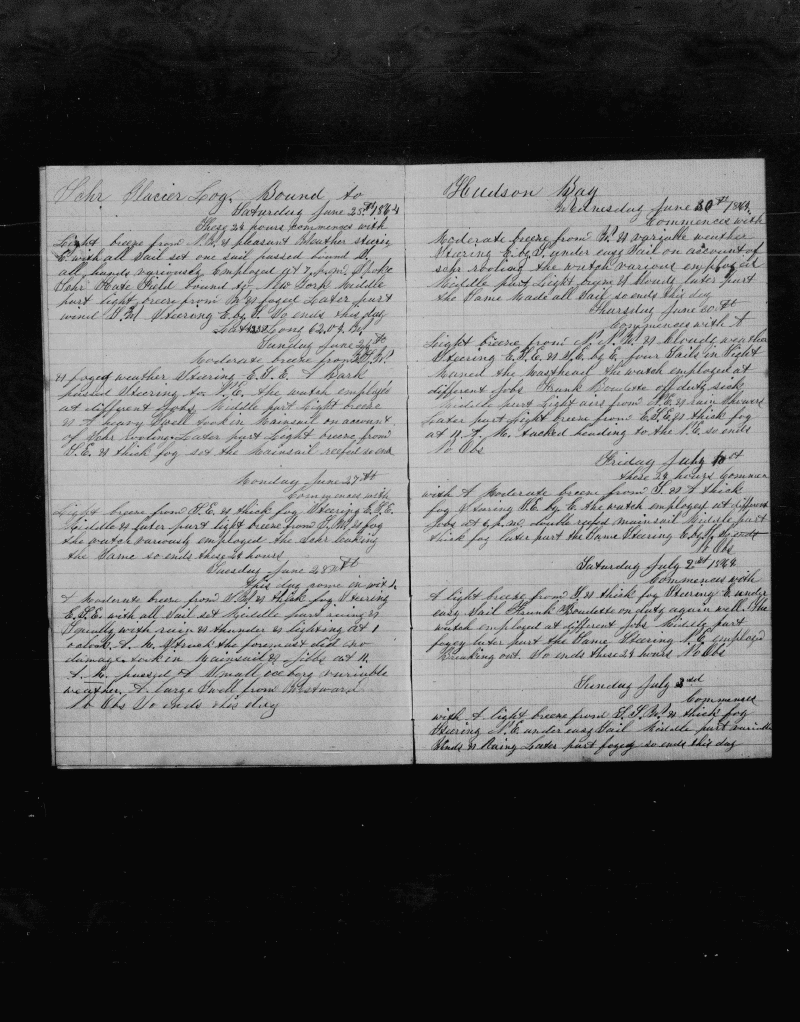 Schr Glacier Log, Bound to
Saturday June 25th 1864
These 24 hours commences with
Light breeze from S.W. & pleasant Weather steering
E. with all Sail set one sail passed bound W.
all hands variously Employed at 7 p.m. Spoke
Schr Kate Field bound to New York Middle
part light breeze from W & foged Later part
wind S.W. Steering E. by S. So ends this day
Long 62.03 W.
Sunday June 26th
Moderate breeze from S.W.
& foged weather Steering E.S.E. A Bark
passed Steering to N.E. the watch employed
at different Jobs Middle part Light breeze
& A heavy Swell took in Mainsail on account
of Schr rooling Later part Light breeze from
S.E. & thick fog set the Mainsail reefed so ends
Monday June 27th
Commences with
Light breeze from S.E. & thick fog Steering E.S.E.
Middle & later part light breeze from S.W. & fog
the watch variously employed the Schr leaking
the Same so ends these 24 hours
Tuesday June 28th
This day come in with
A Moderate breeze from S.W. & thick fog Steering
E.S.E. with all Sail set Middle part rainey &
Squally with rain & thunder & lighting at 1
oclock A. M. Struck the foremast did no
damage took in Mainsail & Jibbs at 11.
A. M. passed A Small iceberg variable
weather, A large Swell from Westward
No Obs So ends this day
Hudson Bay
Wednesday June 30th 1864
Commences with
Moderate breeze from W. & variable weather
Steering E. by S. under easy Sail on account of
schr rooling the watch various employed
Middle part Light breeze & clouds later part
the Same Made all Sail so ends this day
Thursday June 30th
Commences with A
Light breeze from N.N.W. & Cloudy weather
Steering E.S.E. & S.E. by E. four Sails in Sight
the Masthead the watch employed at
different Jobs Frank Boudete off duty sick
Middle part Light airs from S.E. & rain Showers
Later part Light breeze from E.S.E. & thick fog
at 11. A. M. tacked heading to the N.E. so ends
No Obs
Friday July 1st
these 24 hours Commen
with A Moderate breeze from S. & A thick
fog Steering S.E. by E. the watch employed at different
Jobs at 4, p.m. double reefed mainsail Middle part
thick fog later part the Same Steering E. by S. So ends
No Obs
Saturday July 2nd 1864
Commences with
A light breeze from S. & thick fog Steering E. under
easy Sail Frank Boudette on duty again well. The
watch employed at different Jobs Middle part
fogey later part the Same Steering N.E. employed
Breaking out. So ends these 24 hours No Obs
Sunday July 3rd
Commences
with A light breeze from S.S.W. & thick fog
Steering N.E. under easy Sail Middle part variable
Winds & Rainy Later part fogey so ends this day